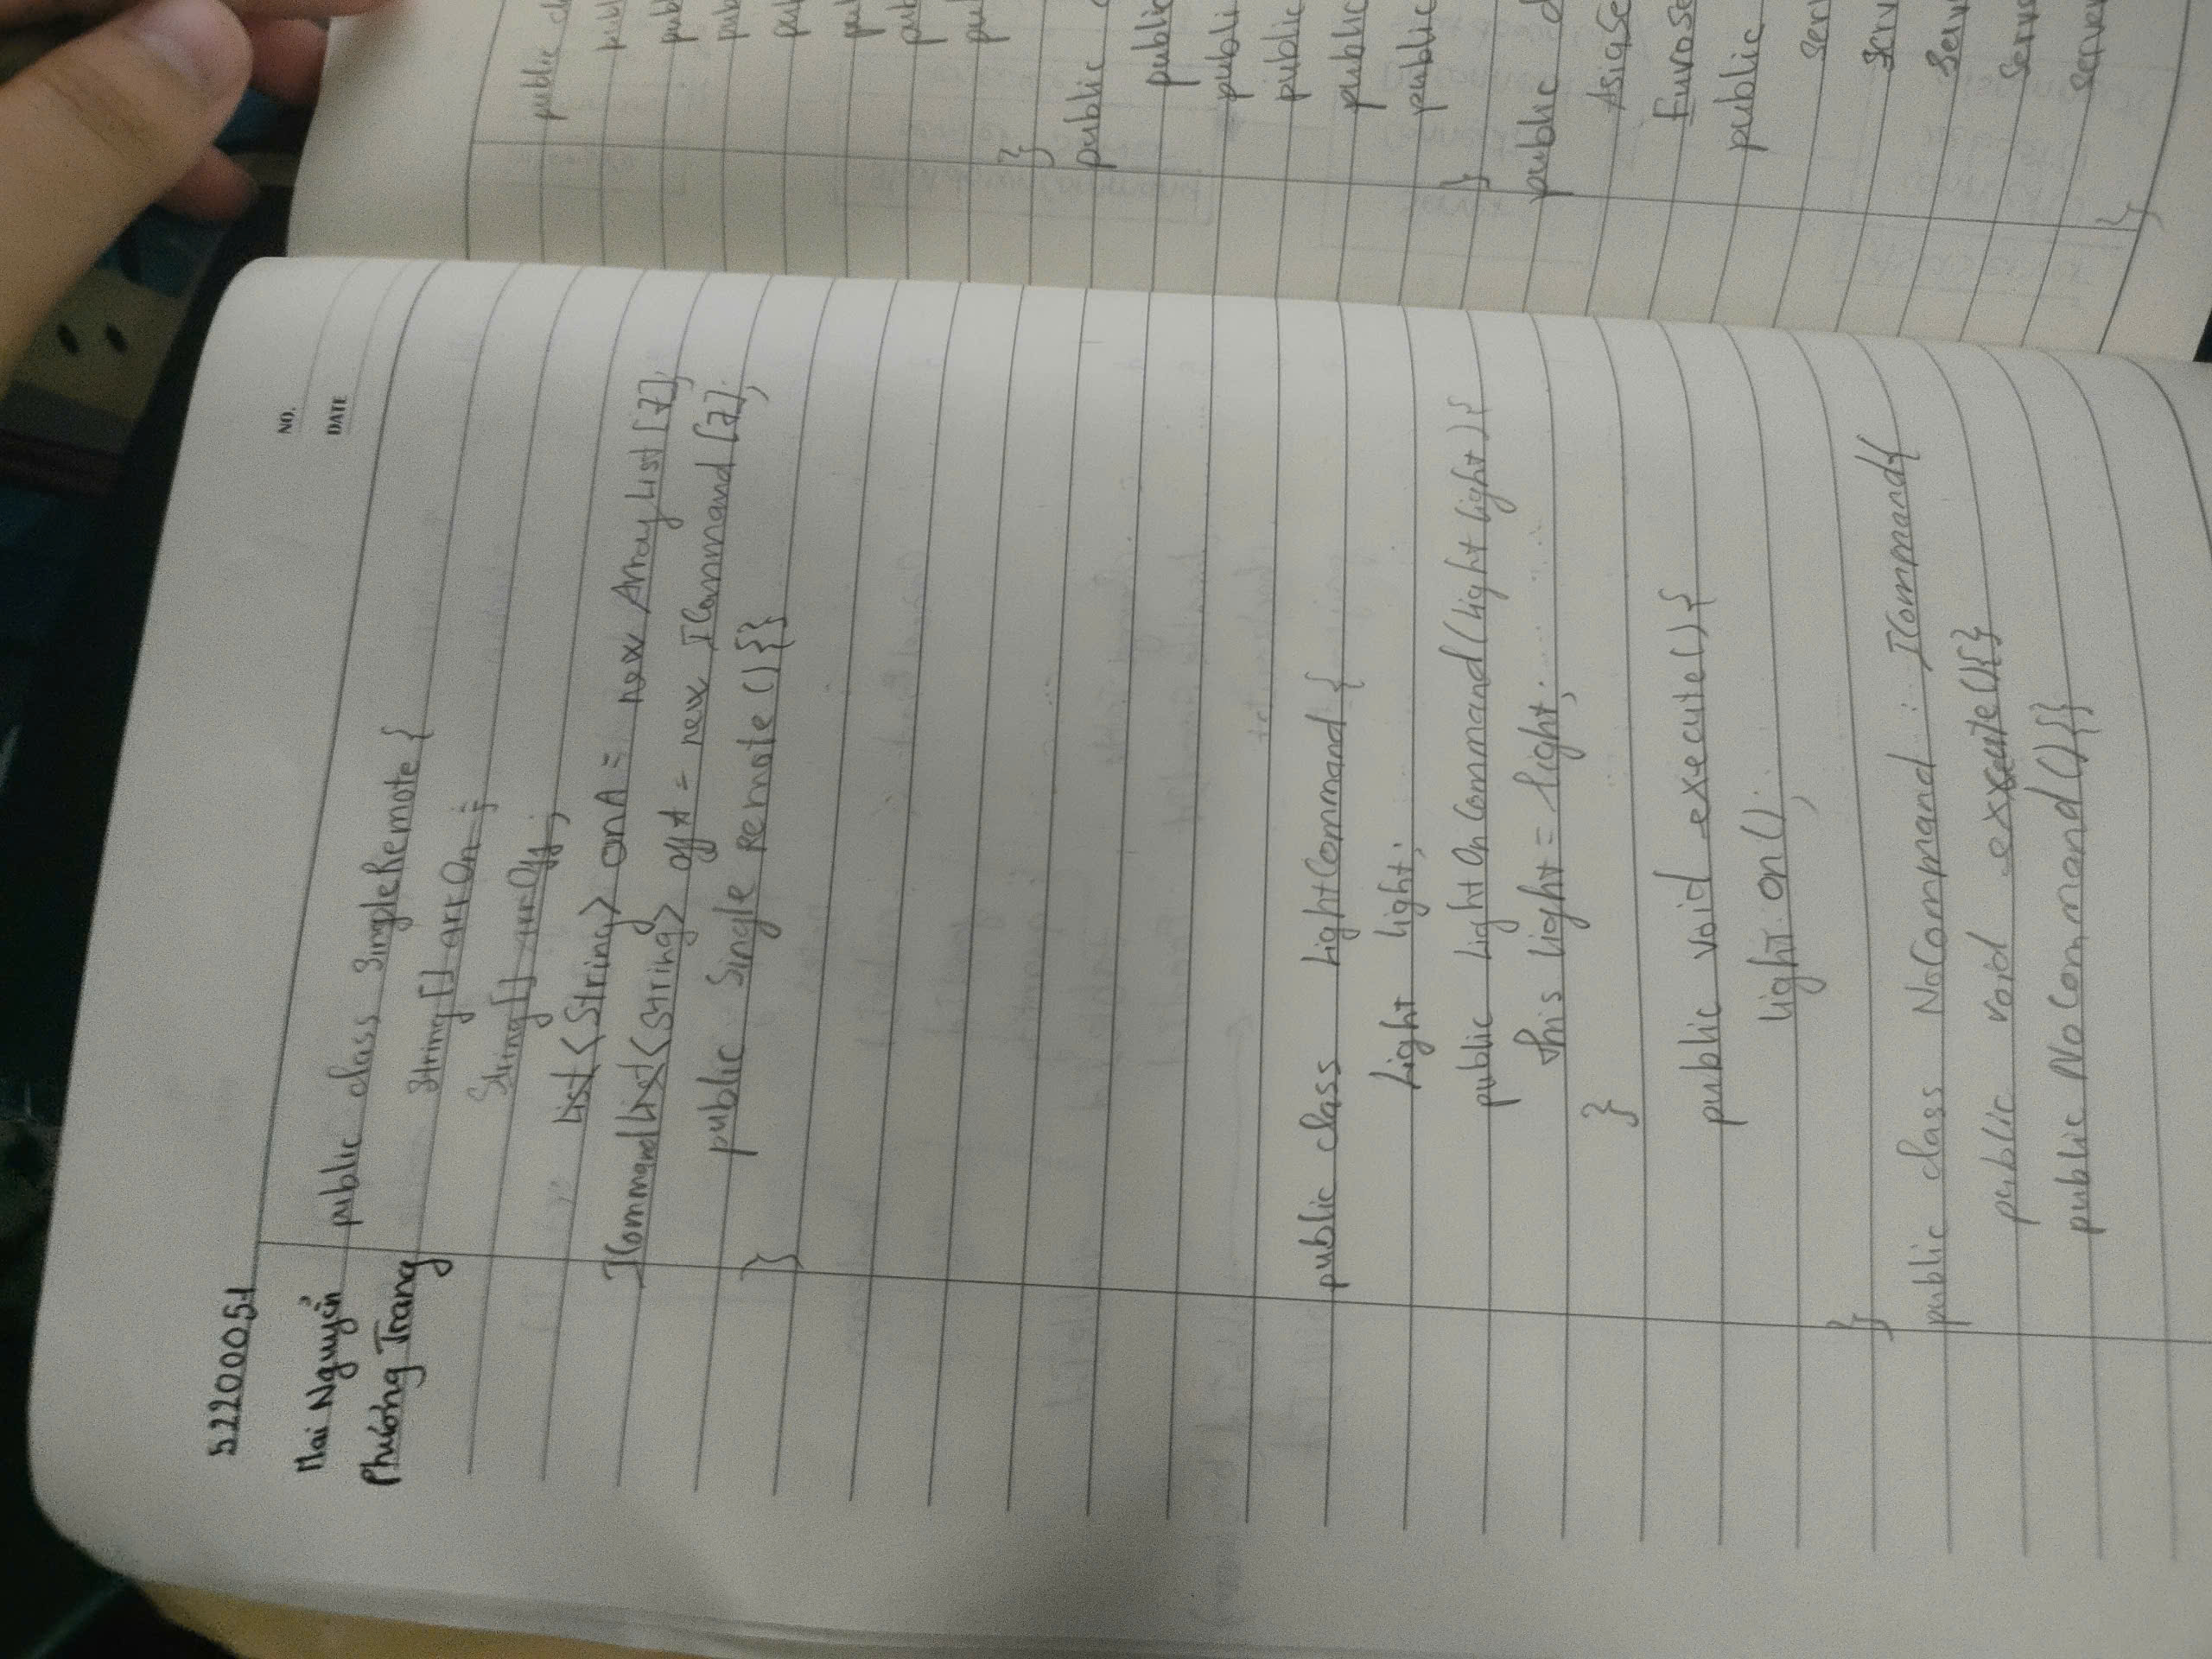 NO.
DATE
52200051
Mai Nguyễn
Phương Trang
public class SingleRemote {
String[] arrOn;
String[] arrOff;
List<String> onA = new ArrayList[7];
ICommand List<String> offA = new ICommand[7];
public Single Remote(){}
}
public class LightCommand {
Light light;
public LightOnCommand(Light light){
this light = light;
}
public void execute(){
light.on();
}
public class NoCommand : ICommand{
public void execute(){}
public NoCommand(){}
public
}
public
public
public
public
public
public
}
public
public
}